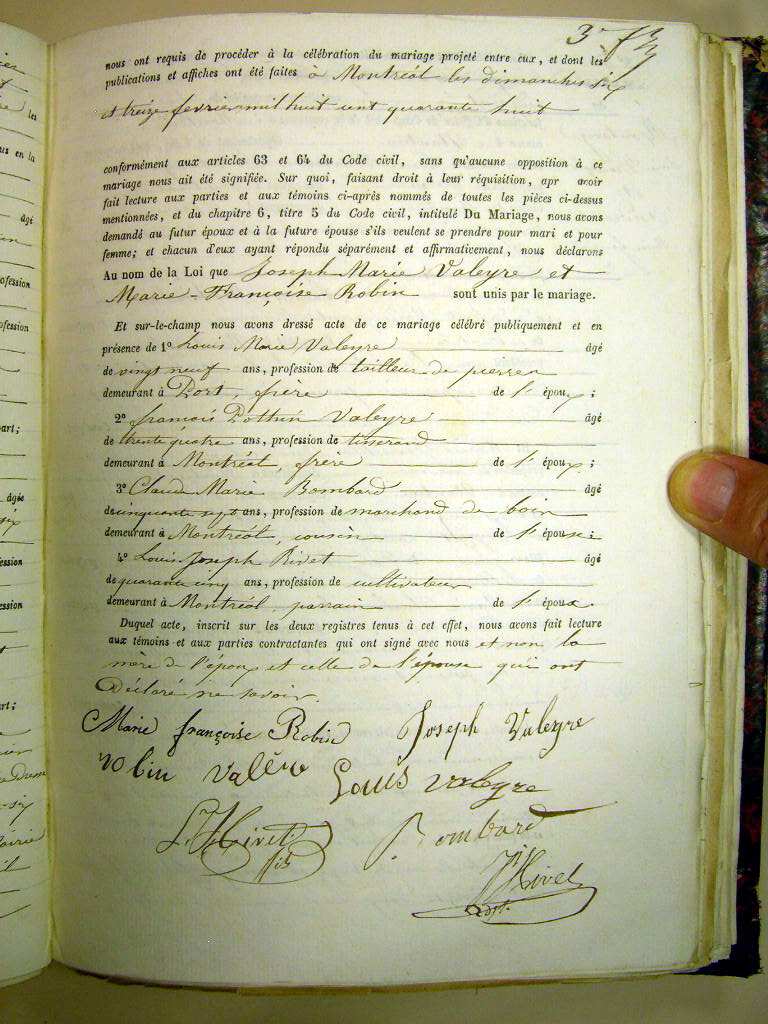 3e
nous ont requis de procéder à la célébration du mariage projeté entre eux, et dont les
publications et affiches ont été faites à Montréal les dimanches six
et treize février mil huit cent quarante huit
conformément aux articles 63 et 64 du Code civil, sans qu'aucune opposition à ce
mariage nous ait été signifiée. Sur quoi, faisant droit à leur réquisition, apr avoir
fait lecture aux parties et aux témoins ci-après nommés de toutes les pièces ci-dessus
mentionnées, et du chapitre 6, titre 5 du Code civil, intitulé Du Mariage, nous avons
demandé au futur époux et à la future épouse s'ils veulent se prendre pour mari et pour
femme; et chacun d'eux ayant répondu séparément et affirmativement, nous déclarons
Au nom de la Loi que Joseph Marie Valeyre et
Marie-Françoise Robin sont unis par le mariage.
Et sur-le-champ nous avons dressé acte de ce mariage célébré publiquement et en
présence de 1º Louis Marie Valeyre âgé
de vingt neuf ans, profession de tailleur de pierres
demeurant à Port, frère de l' époux;
2º françois Valeyre âgé
de trente quatre ans, profession de tisserand
demeurant à Montréal, frère de l' époux;
3º Claude Marie Bombard âgé
de cinquante sept ans, profession de marchand de bois
demeurant à Montréal, cousin de l' épouse;
4º Louis Joseph Rivet âgé
de quarante cinq ans, profession de cultivateur
demeurant à Montréal, parrain de l' époux.
Duquel acte, inscrit sur les deux registres tenus à cet effet, nous avons fait lecture
aux témoins et aux parties contractantes qui ont signé avec nous et non la
mère de l'époux et celle de l'épouse qui ont
Déclaré ne savoir.
Marie françoise Robin Joseph Valeyre
Louis Valeyre
Bombard